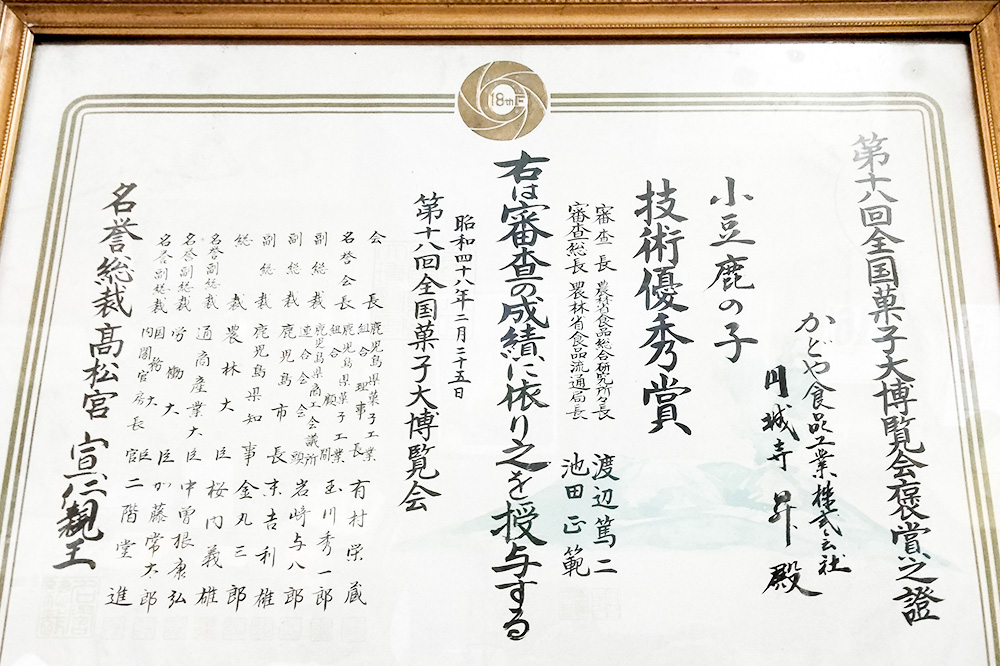 18th
第十八回全国菓子大博覧会褒賞之證
かどや食品工業株式会社
円城寺 昇 殿
小豆鹿の子
技術優秀賞
審査長 農林省食糧総合研究所長 渡辺篤二
審査総長 農林省食品流通局長 池田正範
右は審査の成績に依り之を授与する
昭和四十八年二月二十五日
第十八回全国菓子大博覧会
会長 鹿児島県菓子工業組合理事長 有村栄蔵
名誉会長 鹿児島県菓子工業組合顧問 玉川秀一郎
副総裁 鹿児島県商工会議所連合会会頭 岩崎与八郎
副総裁 鹿児島市長 末吉利雄
総裁 鹿児島県知事 金丸三郎
名誉副総裁 農林大臣 桜内義雄
名誉副総裁 通商産業大臣 中曽根康弘
名誉副総裁 労働大臣 加藤常太郎
国務大臣
内閣官房長官 二階堂進
名誉総裁高松宮 宣仁親王